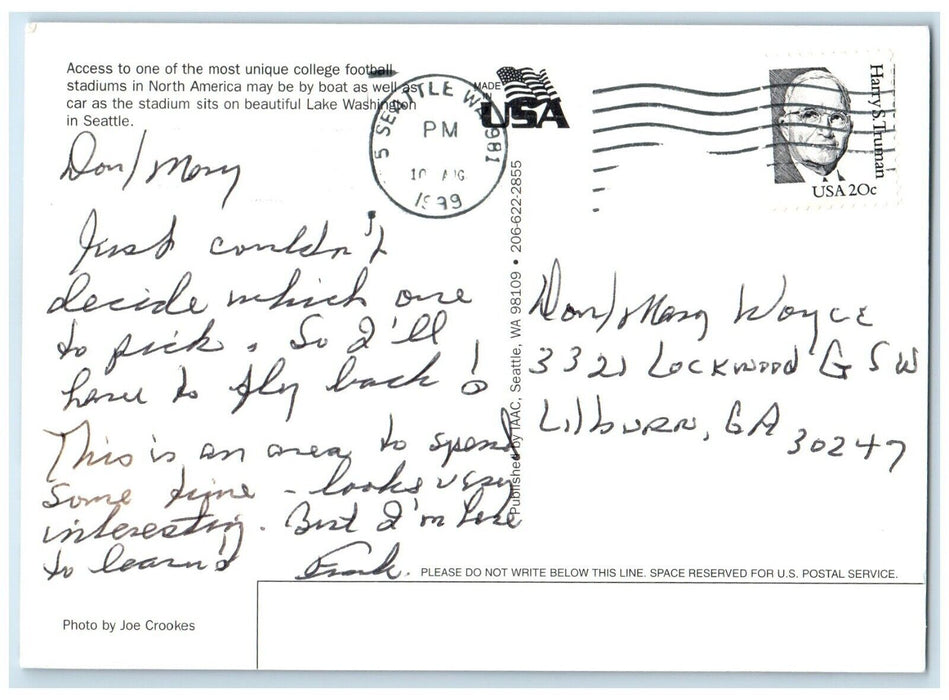 Access to one of the most unique college football
stadiums in North America may be by boat as well as
car as the stadium sits on beautiful Lake Washington
in Seattle.
Don/Mary
Just couldn't
decide which one
to pick. So I'll
have to fly back!
This is an area to spend
some time - looks very
interesting. But I'm here
to learn!
Frank.
SEATTLE WA 981
PM
10 AUG
MADE
IN
USA
Harry S. Truman
USA 20c
Published by IAAC, Seattle, WA 98109 • 206-622-2855
Don/Mary
3321 Lockwood G SW
Lilburn, GA
30247
PLEASE DO NOT WRITE BELOW THIS LINE. SPACE RESERVED FOR U.S. POSTAL SERVICE.
Photo by Joe Crookes